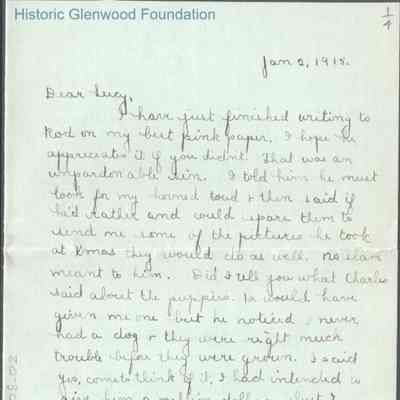 Historic Glenwood Foundation
1/4
Jan 2, 1918.
Dear Lucy,
I have just finished writing to
Rod on my best pink paper. I hope he
appreciates it if you didnt. That was an
unpardonable sin. I told him he must
look for my horned toad & then said if
he'd rather and could spare them to
send me some of the pictures he took
at Xmas they would do as well. No slam
meant to him. Did I tell you what Charles
said about the puppies. He would have
given me one but he noticed I never
had a dog & they were right much
trouble before they were grown. I said
yes, come to think of it, I had intended to
give him a million dollars but I